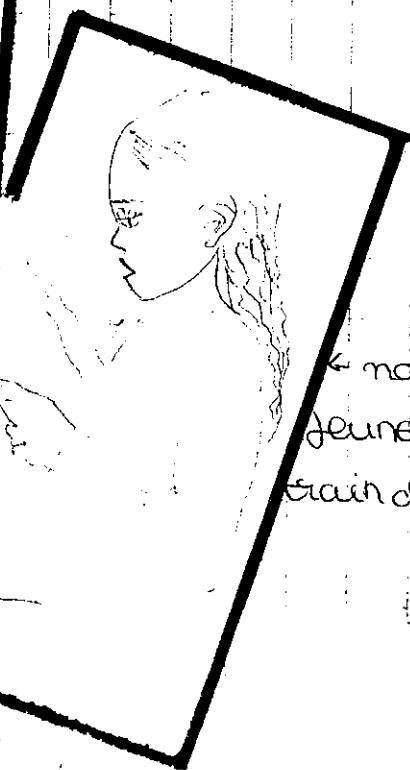 ← no
Jeune
train d